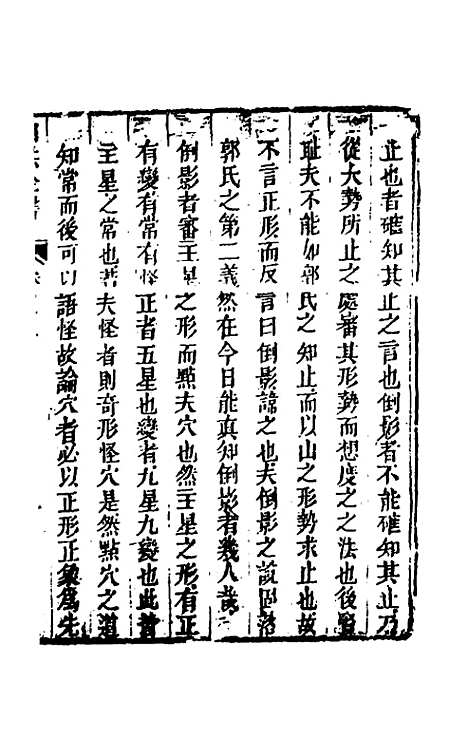 止也者確知其止之言也倒影者不能確知其止乃
從大勢所止之處審其形勢而想度之之法也後賢
耻夫不能如郭氏之知止而以山之形勢求止也故
不言正形而反言曰倒影諱之也夫倒影之說固落
郭氏之第二義然在今日能真知倒影者幾人哉
倒影者審主星之形而點夫穴也然主星之形有正
有變有常有怪正者五星也變者九星九變也此皆
主星之常也若夫怪者則奇形怪穴是然點穴之道
知常而後可以語怪故論穴者必以正形正象爲先